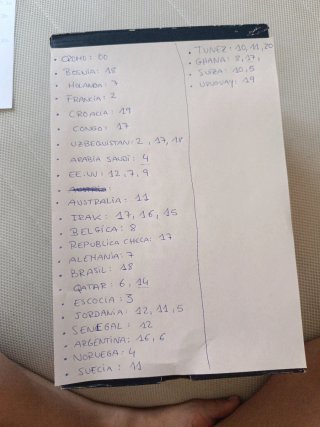 • CROMO: 00
• BOSNIA: 18
• HOLANDA: 7
• FRANCIA: 2
• CROACIA: 19
• CONGO: 17
• UZBEQUISTAN: 2, 17, 18
• ARABIA SAUDÍ: 4
• EE.UU: 12, 7, 9
• AUSTRALIA: 11
• IRAK: 17, 16, 15
• BELGICA: 8
• REPUBLICA CHECA: 17
• ALEMANIA: 7
• BRASIL: 18
• QATAR: 6, 14
• ESCOCIA: 3
• JORDANIA: 12, 11, 5
• SENEGAL: 12
• ARGENTINA: 16, 6
• NORUEGA: 4
• SUECIA: 11
• TUNEZ: 10, 11, 20
• GHANA: 8, 17,
• SUIZA: 10, 5
• URUGUAY: 19